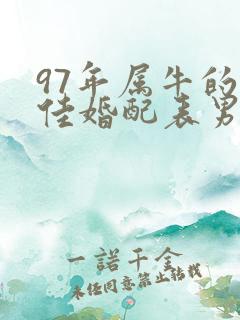 97年属牛的
佳婚配表男
一諾千金
未经同意禁止转载